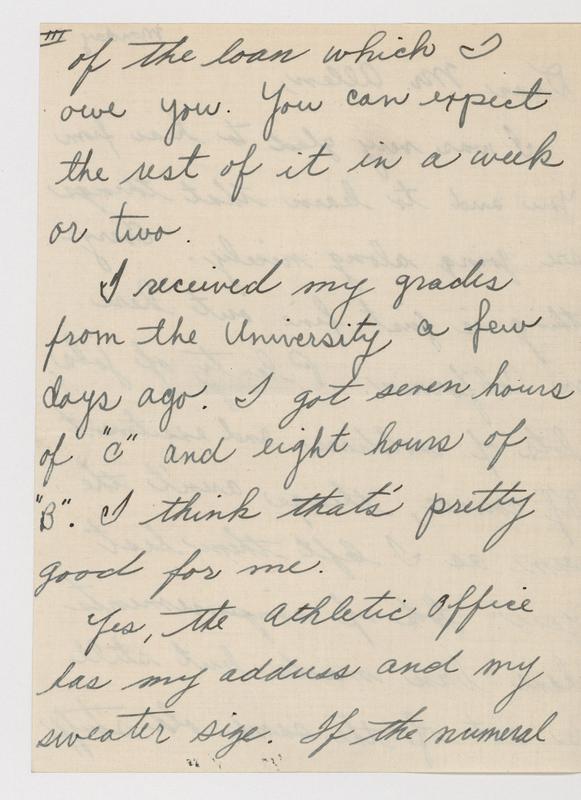 III
of the loan which I
owe you. You can expect
the rest of it in a week
or two.
I received my grades
from the University a few
days ago. I got seven hours
of "C" and eight hours of
"B". I think thats' pretty
good for me.
Yes, the Athletic Office
has my address and my
sweater size. If the numeral